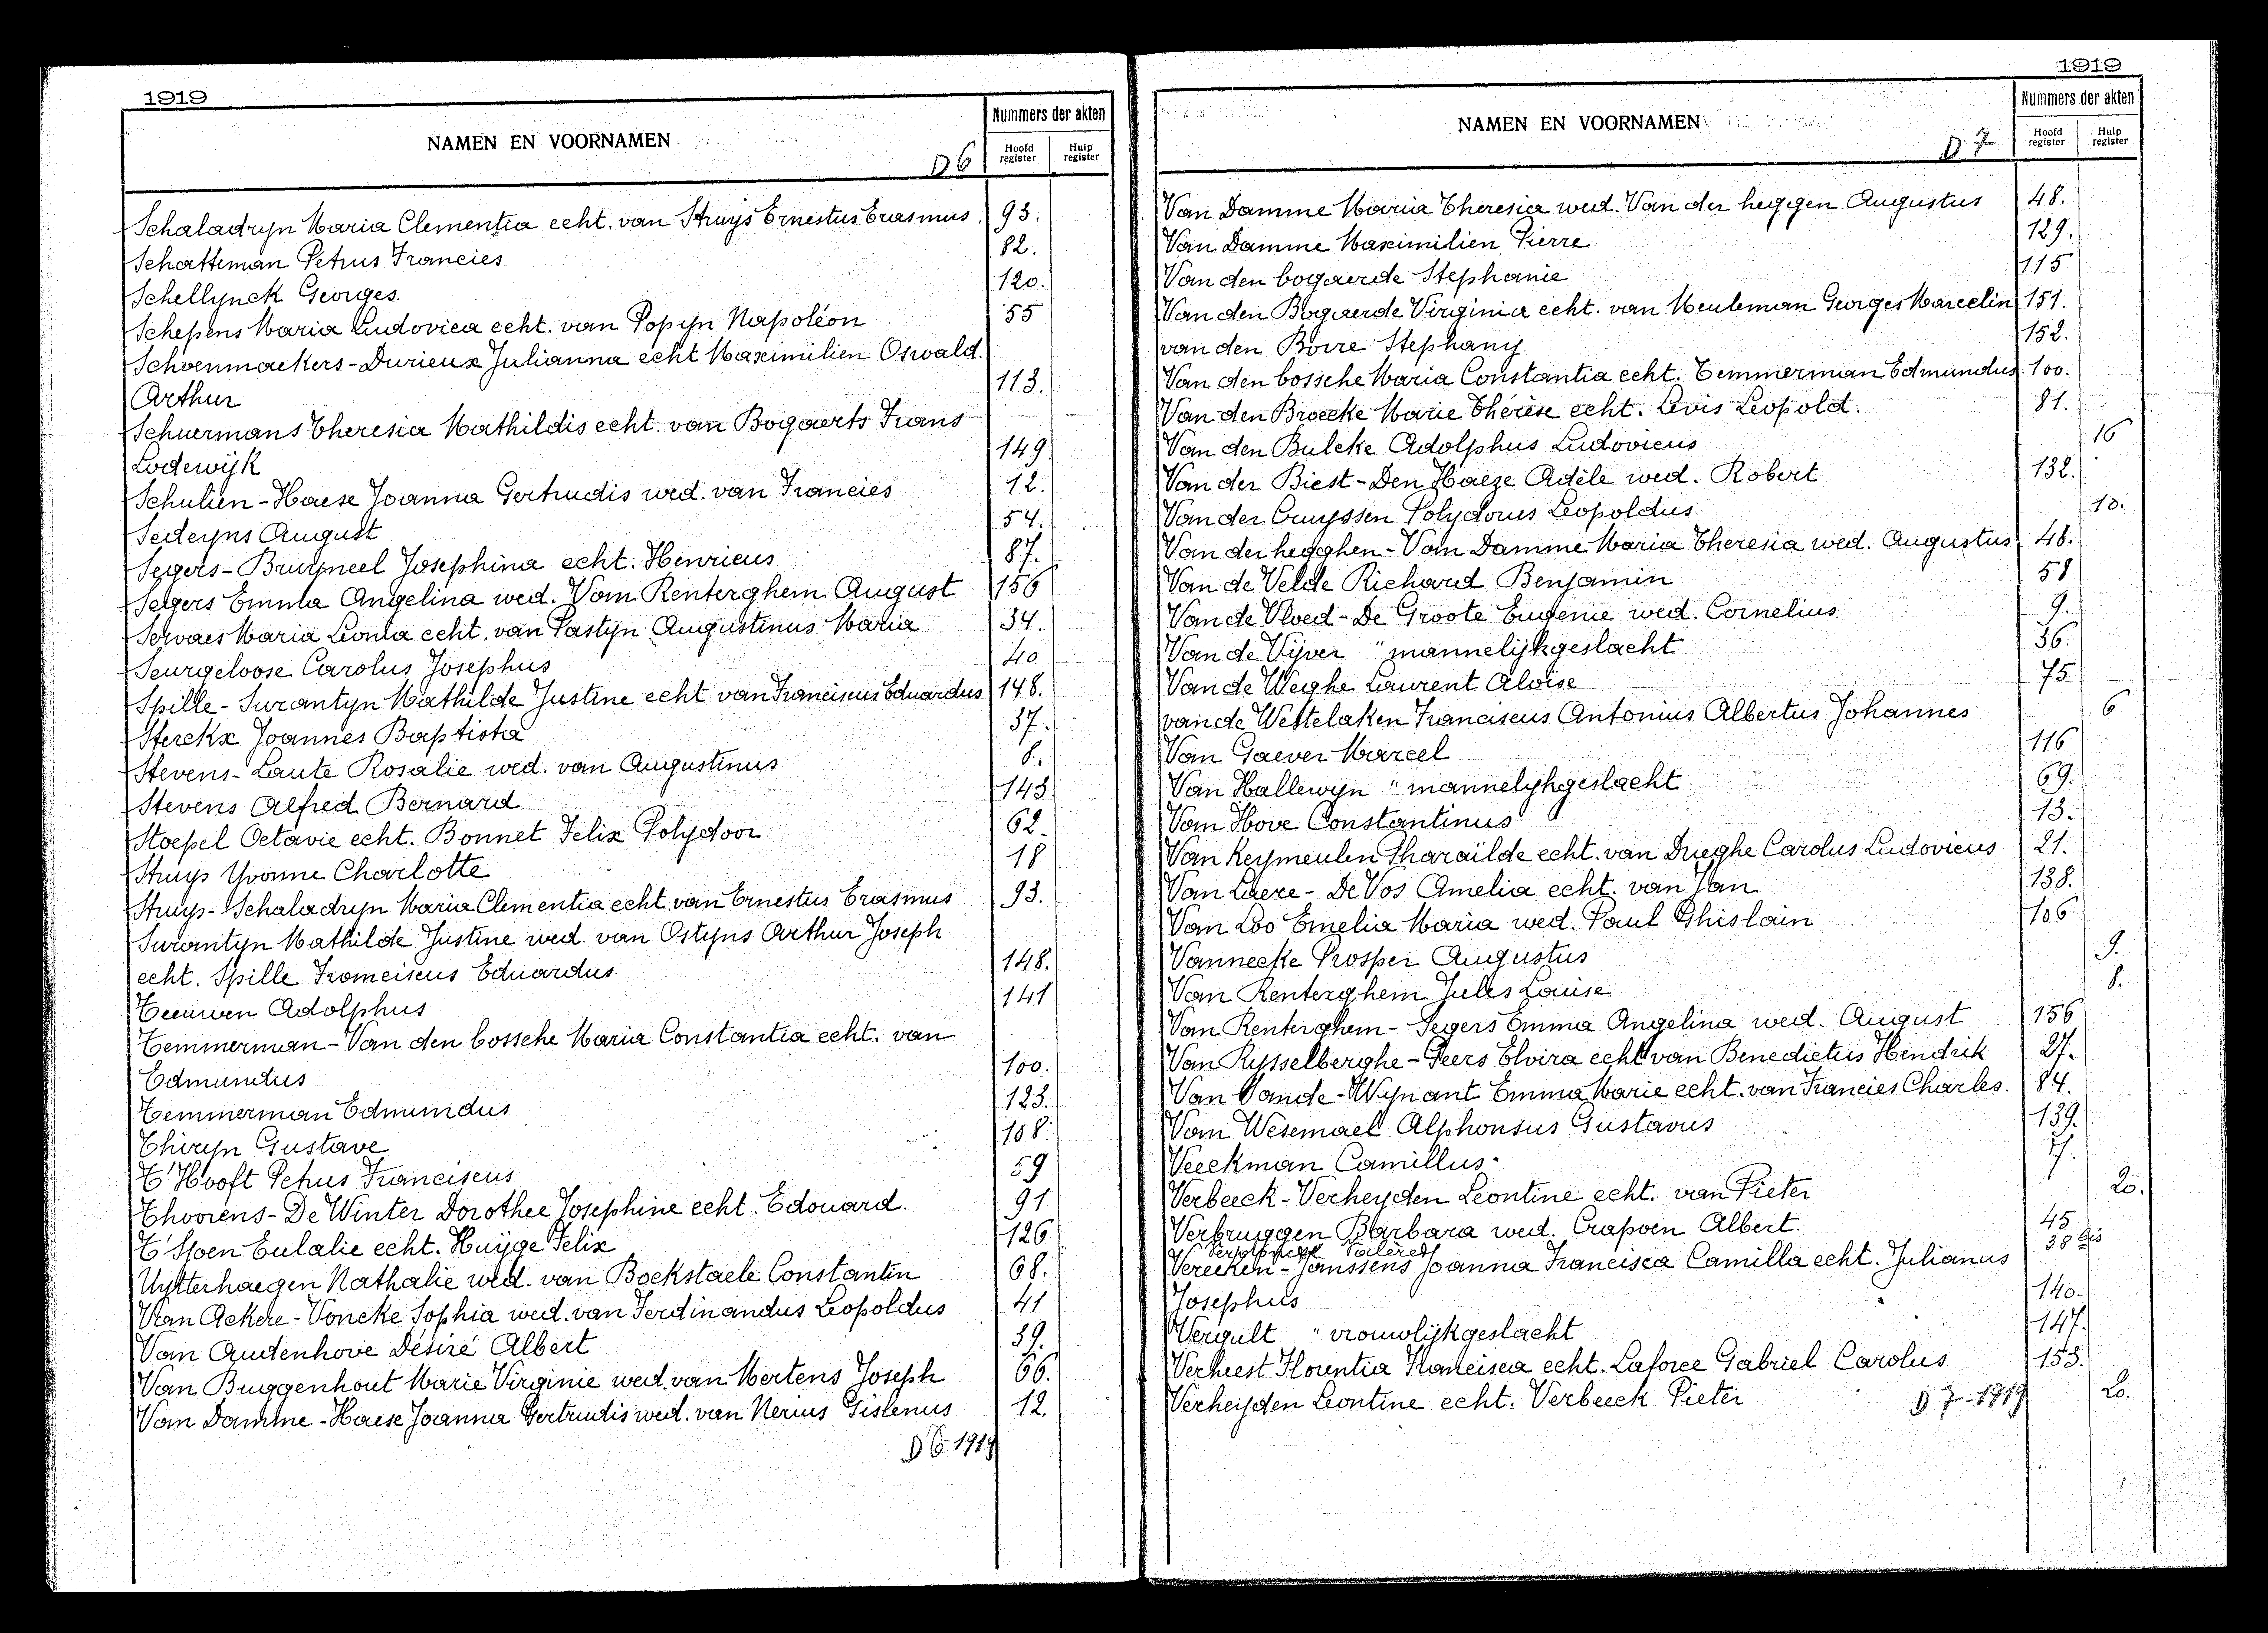 1919
NAMEN EN VOORNAMEN
D 6
Nummers der akten
Hoofd register
Hulp register
Schaladryn Maria Clementia echt. van Struys Ernestus Erasmus. 93.
Schatteman Petrus Francies 82.
Schellynck Georges. 120.
Schepens Maria Ludovica echt. van Popyn Napoléon 55
Schoenmackers-Durieux Julianna echt Maximilien Oswald.
Arthur 113.
Schuermans Theresia Mathildis echt. van Bogaerts Frans
Lodewijk 149.
Schulien-Haese Joanna Gertrudis wed. van Francies 12.
Sedeyns August 54.
Segers-Bruyneel Josephina echt: Henricus 87.
Segers Emma Angelina wed. Van Renterghem August 156
Servaes Maria Leonia echt. van Pastyn Augustinus Maria 34.
Seurgeloose Carolus Josephus 40
Spille-Surantyn Mathilde Justine echt van Franciscus Eduardus 148.
Sterckx Joannes Baptista 37.
Stevens-Laute Rosalie wed. van Augustinus 8.
Stevens Alfred Bernard 143
Stoepel Octavie echt. Bonnet Felix Polydoor 62.
Struys Yvonne Charlotte 18
Struys-Schaladryn Maria Clementia echt. van Ernestus Erasmus 93.
Surantyn Mathilde Justine wed. van Ostyns Arthur Joseph
echt. Spille Franciscus Eduardus. 148.
Teeuwen Adolphus 141
Temmerman-Van den bossche Maria Constantia echt. van
Edmundus 100.
Temmerman Edmundus 123.
Thiryn Gustave 108.
T'Hooft Petrus Franciscus 59
Thoorens-De Winter Dorothee Josephine echt. Edouard. 91
T'Sjoen Eulalie echt. Huyge Felix 126
Uytterhaegen Nathalie wed. van Bockstaele Constantin 68.
Van Ackere-Voncke Sophia wed. van Ferdinandus Leopoldus 41
Van Audenhove Désiré Albert 39.
Van Buggenhout Marie Virginie wed. van Mertens Joseph 66.
Van Damme-Haese Joanna Gertrudis wed. van Nerius Gislenus 12.
D 6-1919
1919
NAMEN EN VOORNAMEN
D 7
Nummers der akten
Hoofd register
Hulp register
Van Damme Maria Theresia wed. Van der heggen Augustus 48.
Van Damme Maximilien Pierre 129.
Van den bogaerde Stephanie 115
Van den Bogaerde Virginia echt. van Meuleman Georges Marcelin 151.
van den Borre Stephany 152.
Van den bossche Maria Constantia echt. Temmerman Edmundus 100.
Van den Broecke Marie Thérèse echt. Levis Leopold. 81.
Van den Bulcke Adolphus Ludovicus 16
Van der Biest-Den Haeze Adèle wed. Robert 132.
Van der Cruyssen Polydorus Leopoldus 10.
Van der hegghen-Van Damme Maria Theresia wed. Augustus 48.
Van de Velde Richard Benjamin 58
Van de Vloed-De Groote Eugenie wed. Cornelius 9.
Van de Vijver " mannelijkgeslacht 36.
Van de Weighe Laurent Aloise 75
van de Wettelaken Franciscus Antonius Albertus Johannes 6
Van Gaever Marcel 116
Van Hallewyn " mannelykgeslacht 69.
Van Hove Constantinus 13.
Van Keymeulen Pharaïlde echt. van Drieghe Carolus Ludovicus 21.
Van Laere-De Vos Amelia echt. van Jan 138.
Van Loo Emelia Maria wed. Paul Ghislain 106
Vannecke Prosper Augustus 9.
Van Renterghem Jules Louise 8.
Van Renterghem-Segers Emma Angelina wed. August 156
Van Rysselberghe-Peers Elvira echt van Benedictus Hendrik 27.
Van Vande-Wynant Emma Marie echt. van Francies Charles. 84.
Van Wesemael Alphonsus Gustavus 139.
Veeckman Camillus. 7.
Verbeeck-Verheyden Leontine echt. van Pieter 20.
Verbruggen Barbara wed. Crapoen Albert. 45
Valère 38 bis
Verecken-Janssens Joanna Francisca Camilla echt. Julianus
Josephus 140.
Vergult " vrouwlijkgeslacht 147.
Verheest Florentia Francisca echt. Laforce Gabriel Carolus 153.
Verheijden Leontine echt. Verbeeck Pieter 20.
D 7-1919